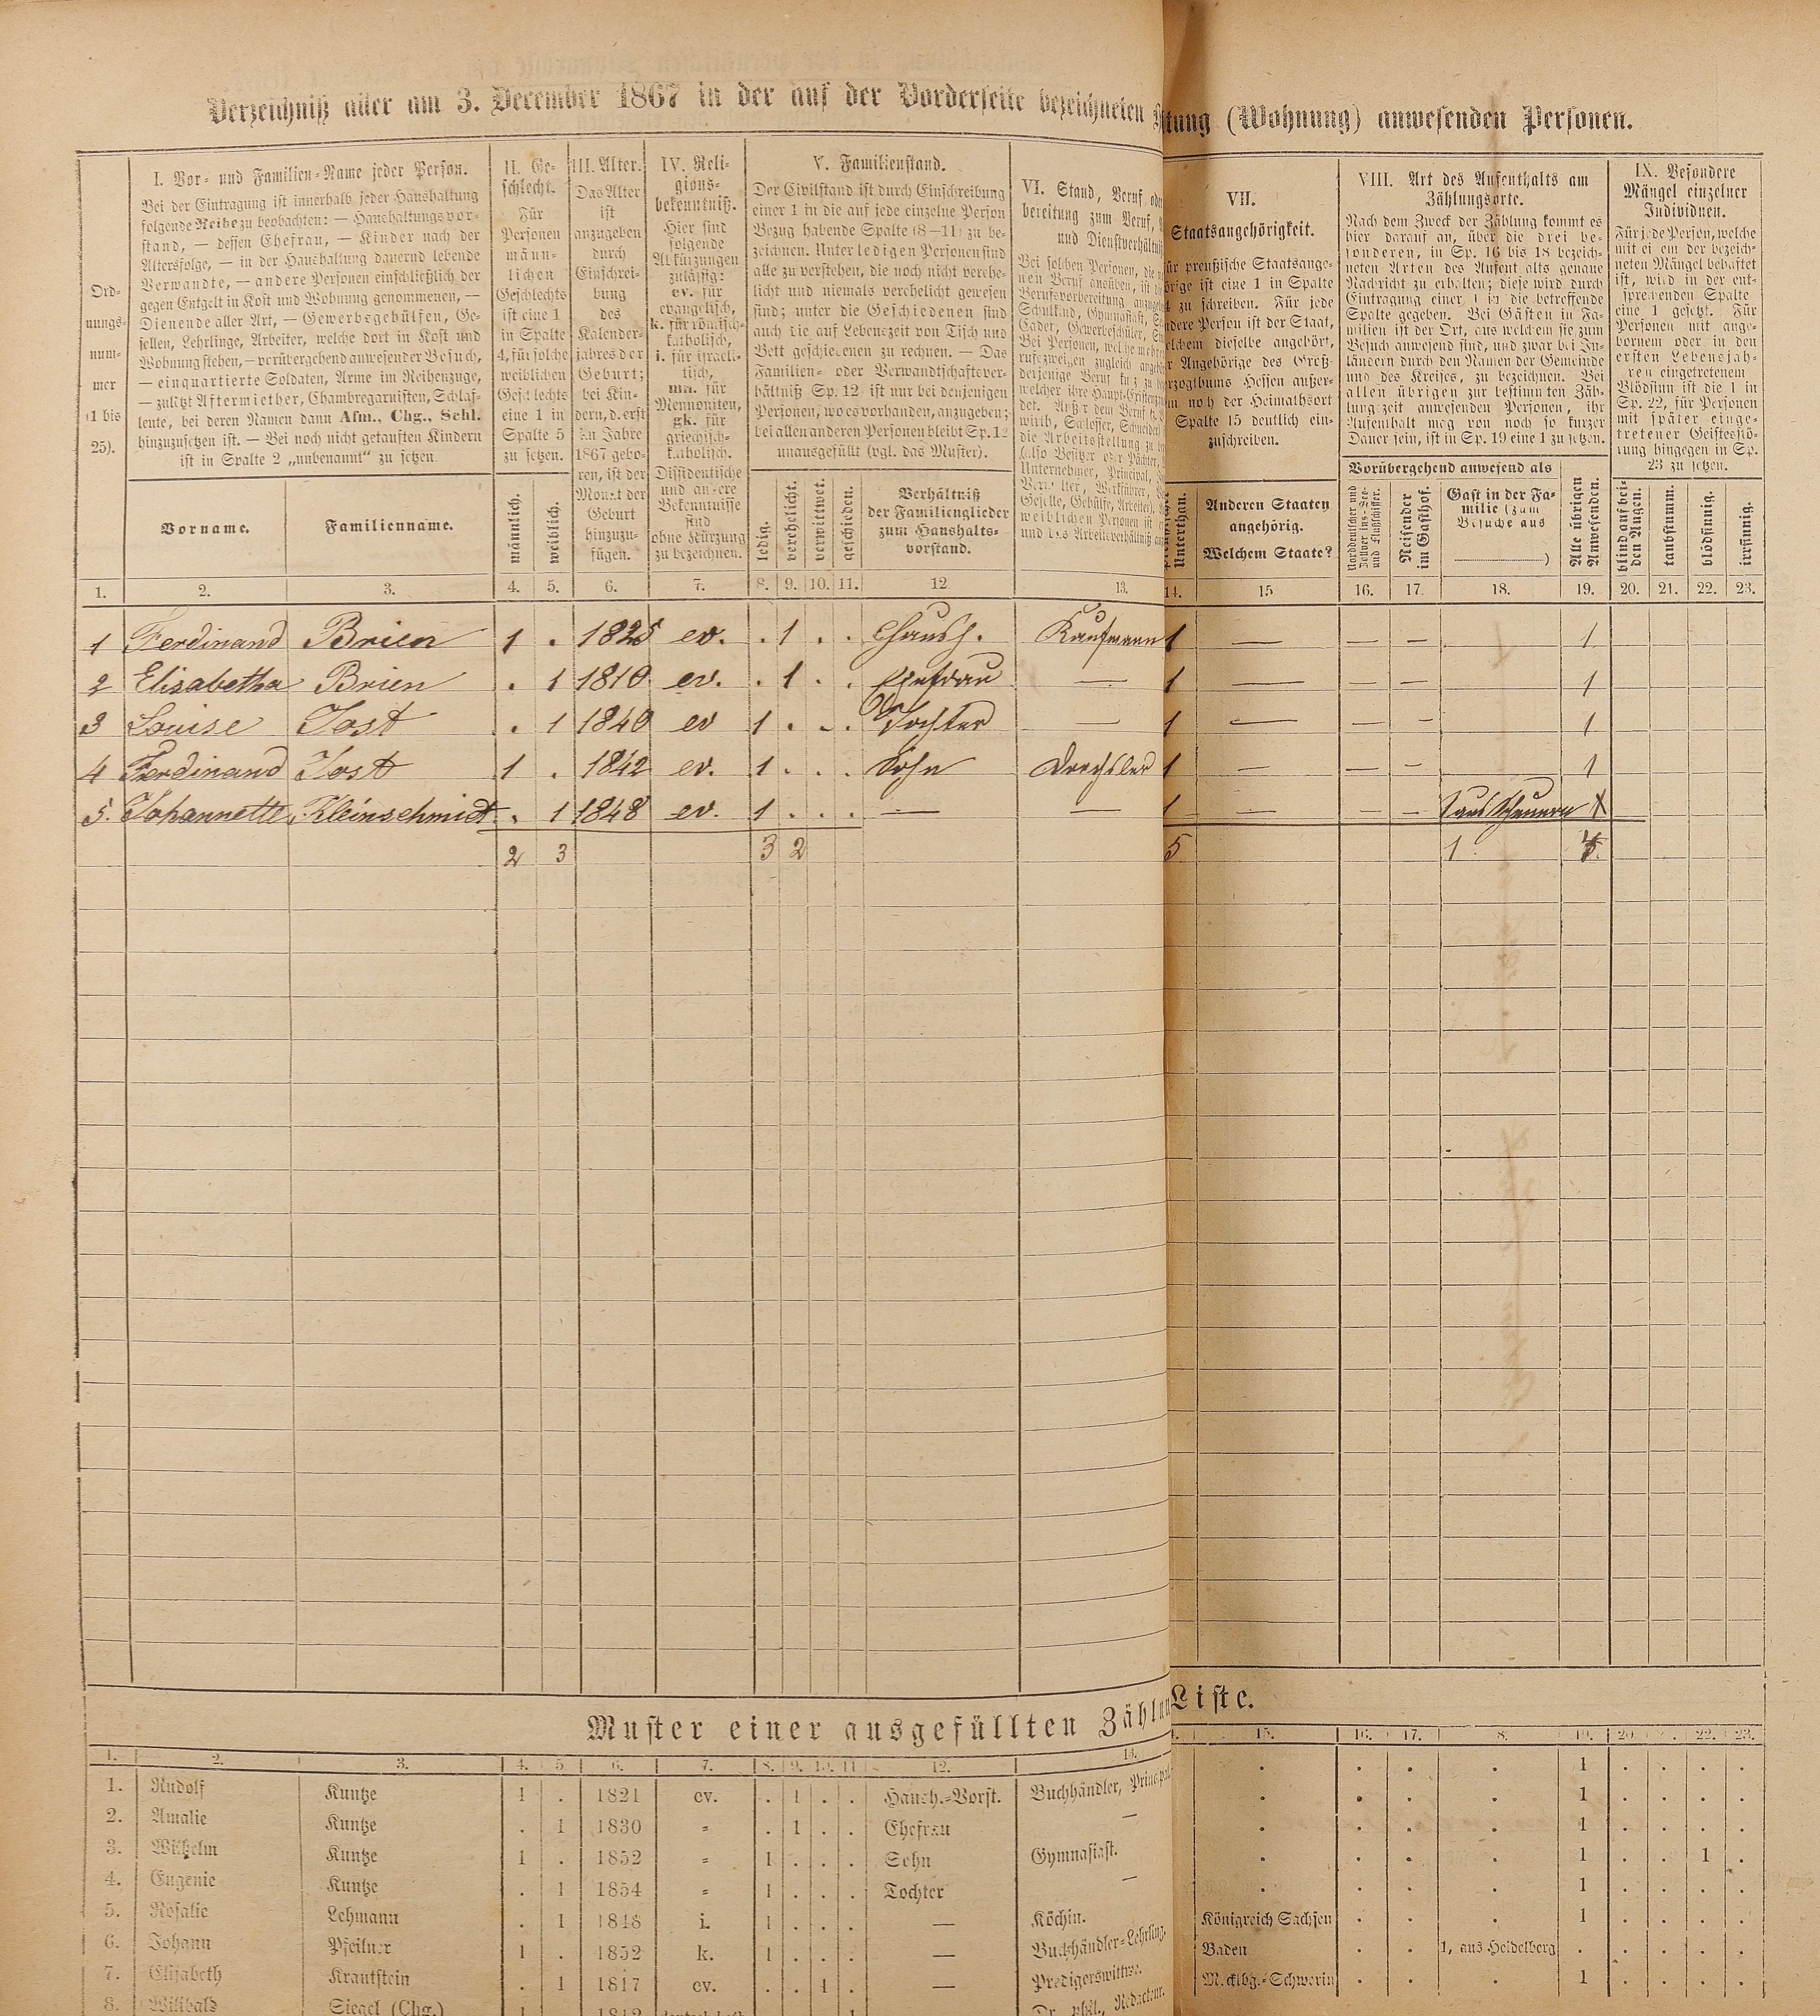 Verzeichniß aller am 3. December 1867 in der auf der Vorderseite bezeichneten
tung (Wohnung) anwesenden Personen.
Ord-
nungs-
num-
mer
(1 bis
25).
I. Vor- und Familien-Name jeder Person.
Bei der Eintragung ist innerhalb jeder Haushaltung
folgende Reihe zu beobachten: — Haushaltungsvor-
stand, — dessen Ehefrau, — Kinder nach der
Altersfolge, — in der Haushaltung dauernd lebende
Verwandte, — andere Personen einschließlich der
gegen Entgelt in Kost und Wohnung genommenen, —
Dienende aller Art, — Gewerbsgehülfen, Ge-
sellen, Lehrlinge, Arbeiter, welche dort in Kost und
Wohnung stehen, — vorübergehend anwesender Besuch,
— einquartierte Soldaten, Arme im Reihenzuge,
— zuletzt Aftermiether, Chambregarnisten, Schlaf-
leute, bei deren Namen dann Afm., Chg., Schl.
hinzuzusetzen ist. — Bei noch nicht getauften Kindern
ist in Spalte 2 „unbenannt“ zu setzen.
Vorname.
Familienname.
II. Ge-
schlecht.
Für
Personen
männ-
lichen
Geschlechts
ist eine 1
in Spalte
4, für solche
weiblichen
Geschlechts
eine 1 in
Spalte 5
zu setzen.
männlich.
weiblich.
III. Alter.
Das Alter
ist
anzugeben
durch
Einschrei-
bung
des
Kalender-
jahres der
Geburt;
bei Kin-
dern, d. erst
im Jahre
1867 gebo-
ren, ist der
Monat der
Geburt
hinzuzu-
fügen.
IV. Reli-
gions-
bekenntniß.
Hier sind
folgende
Abkürzungen
zulässig:
ev. für
evangelisch,
k. für römisch-
katholisch,
i. für israeli-
tisch,
mn. für
Mennoniten,
gk. für
griechisch-
katholisch.
Dissidentische
und andere
Bekenntnisse
sind
ohne Kürzung
zu bezeichnen.
V. Familienstand.
Der Civilstand ist durch Einschreibung
einer 1 in die auf jede einzelne Person
Bezug habende Spalte (8—11) zu be-
zeichnen. Unter ledigen Personen sind
alle zu verstehen, die noch nicht verehe-
licht und niemals verehelicht gewesen
sind; unter die Geschiedenen sind
auch die auf Lebenszeit von Tisch und
Bett geschiedenen zu rechnen. — Das
Familien- oder Verwandtschaftsver-
hältniß Sp. 12 ist nur bei denjenigen
Personen, wo es vorhanden, anzugeben;
bei allen anderen Personen bleibt Sp. 12
unausgefüllt (vgl. das Muster).
ledig.
verehelicht.
verwittwet.
geschieden.
Verhältniß
der Familienglieder
zum Haushalts-
vorstand.
VI. Stand, Beruf oder
bereitung zum Beruf,
und Dienstverhältniß
VII.
Staatsangehörigkeit.
für preußische Staatsange-
hörige ist eine 1 in Spalte
14 zu schreiben. Für jede
andere Person ist der Staat,
welchem dieselbe angehört,
für Angehörige des Groß-
herzogthums Hessen außer-
dem noch der Heimathsort
Spalte 15 deutlich ein-
zuschreiben.
Unterthan.
Anderen Staaten
angehörig.
Welchem Staate?
VIII. Art des Aufenthalts am
Zählungsorte.
Nach dem Zweck der Zählung kommt es
hier darauf an, über die drei be-
sonderen, in Sp. 16 bis 18 bezeich-
neten Arten des Aufenthalts genaue
Nachricht zu erhalten; diese wird durch
Eintragung einer 1 in die betreffende
Spalte gegeben. Bei Gästen in Fa-
milien ist der Ort, aus welchem sie zum
Besuch anwesend sind, und zwar bei In-
ländern durch den Namen der Gemeinde
und des Kreises, zu bezeichnen. Bei
allen übrigen zur bestimmten Zäh-
lungszeit anwesenden Personen, ihr
Aufenthalt mag von noch so kurzer
Dauer sein, ist in Sp. 19 eine 1 zu setzen.
Vorübergehend anwesend als
Norddeutscher und
Zollver ins-See-
und Flußschiffer.
Reisender
im Gasthof.
Gast in der Fa-
milie (zum
Besuche aus
)
Alle übrigen
Anwesenden.
IX. Besondere
Mängel einzelner
Individuen.
Für jede Person, welche
mit einem der bezeich-
neten Mängel behaftet
ist, wird in der ent-
sprechenden Spalte
eine 1 gesetzt. Für
Personen mit ange-
bornem oder in den
ersten Lebensjah-
ren eingetretenem
Blödsinn ist die 1 in
Sp. 22, für Personen
mit später einge-
tretener Geistesstö-
rung hingegen in Sp.
23 zu setzen.
blind auf bei-
den Augen.
taubstumm.
blödsinnig.
irrsinnig.
1. 2. 3. 4. 5. 6. 7. 8. 9. 10. 11. 12 13. 14. 15 16. 17. 18. 19. 20. 21. 22. 23.
1 Ferdinand Brien 1 . 1825 ev. . 1 . . Haush. Kaufmann 1 — — — 1
2 Elisabetha Brien . 1 1810 ev. . 1 . . Ehefrau — 1 — — — 1
3 Louise Jost . 1 1840 ev 1 . . . Tochter — 1 — — — 1
4 Ferdinand Jost 1 . 1842 ev. 1 . . . Sohn Drechsler 1 — — — 1
5. Johannette Kleinschmidt . 1 1848 ev. 1 . . . — — 1 — — — 1 aus
2 3 3 2 5 1 4.
Muster einer ausgefüllten Zählun
Liste.
1. 2. 3. 4. 5 6. 7. 8. 9. 10. 11 12. 13. 15. 16. 17. 8. 19. 20 22. 23.
1. Rudolf Kuntze 1 . 1821 ev. . 1 . . Haush.-Vorst. Buchhändler, Principal . . . . 1 . . . .
2. Amalie Kuntze . 1 1830 = . 1 . . Ehefrau — . . . . 1 . . . .
3. Wilhelm Kuntze 1 . 1852 = 1 . . . Sohn Gymnasiast. . . . . 1 . . 1 .
4. Eugenie Kuntze . 1 1854 = 1 . . . Tochter — . . . . 1 . . . .
5. Rosalie Lehmann . 1 1848 i. 1 . . . — Köchin. Königreich Sachsen . . . 1 . . . .
6. Johann Pfeilner 1 . 1852 k. 1 . . . — Buchhändler-Lehrling. Baden . . 1, aus Heidelberg . . . . .
7. Elisabeth Krautstein . 1 1817 ev. . . 1 . — Predigerswittwe. Mcklbg.-Schwerin . . . 1 . . . .
8. Willibald Siegel (Chg.) 1 . 1842 Dr. phil., Redacteur.